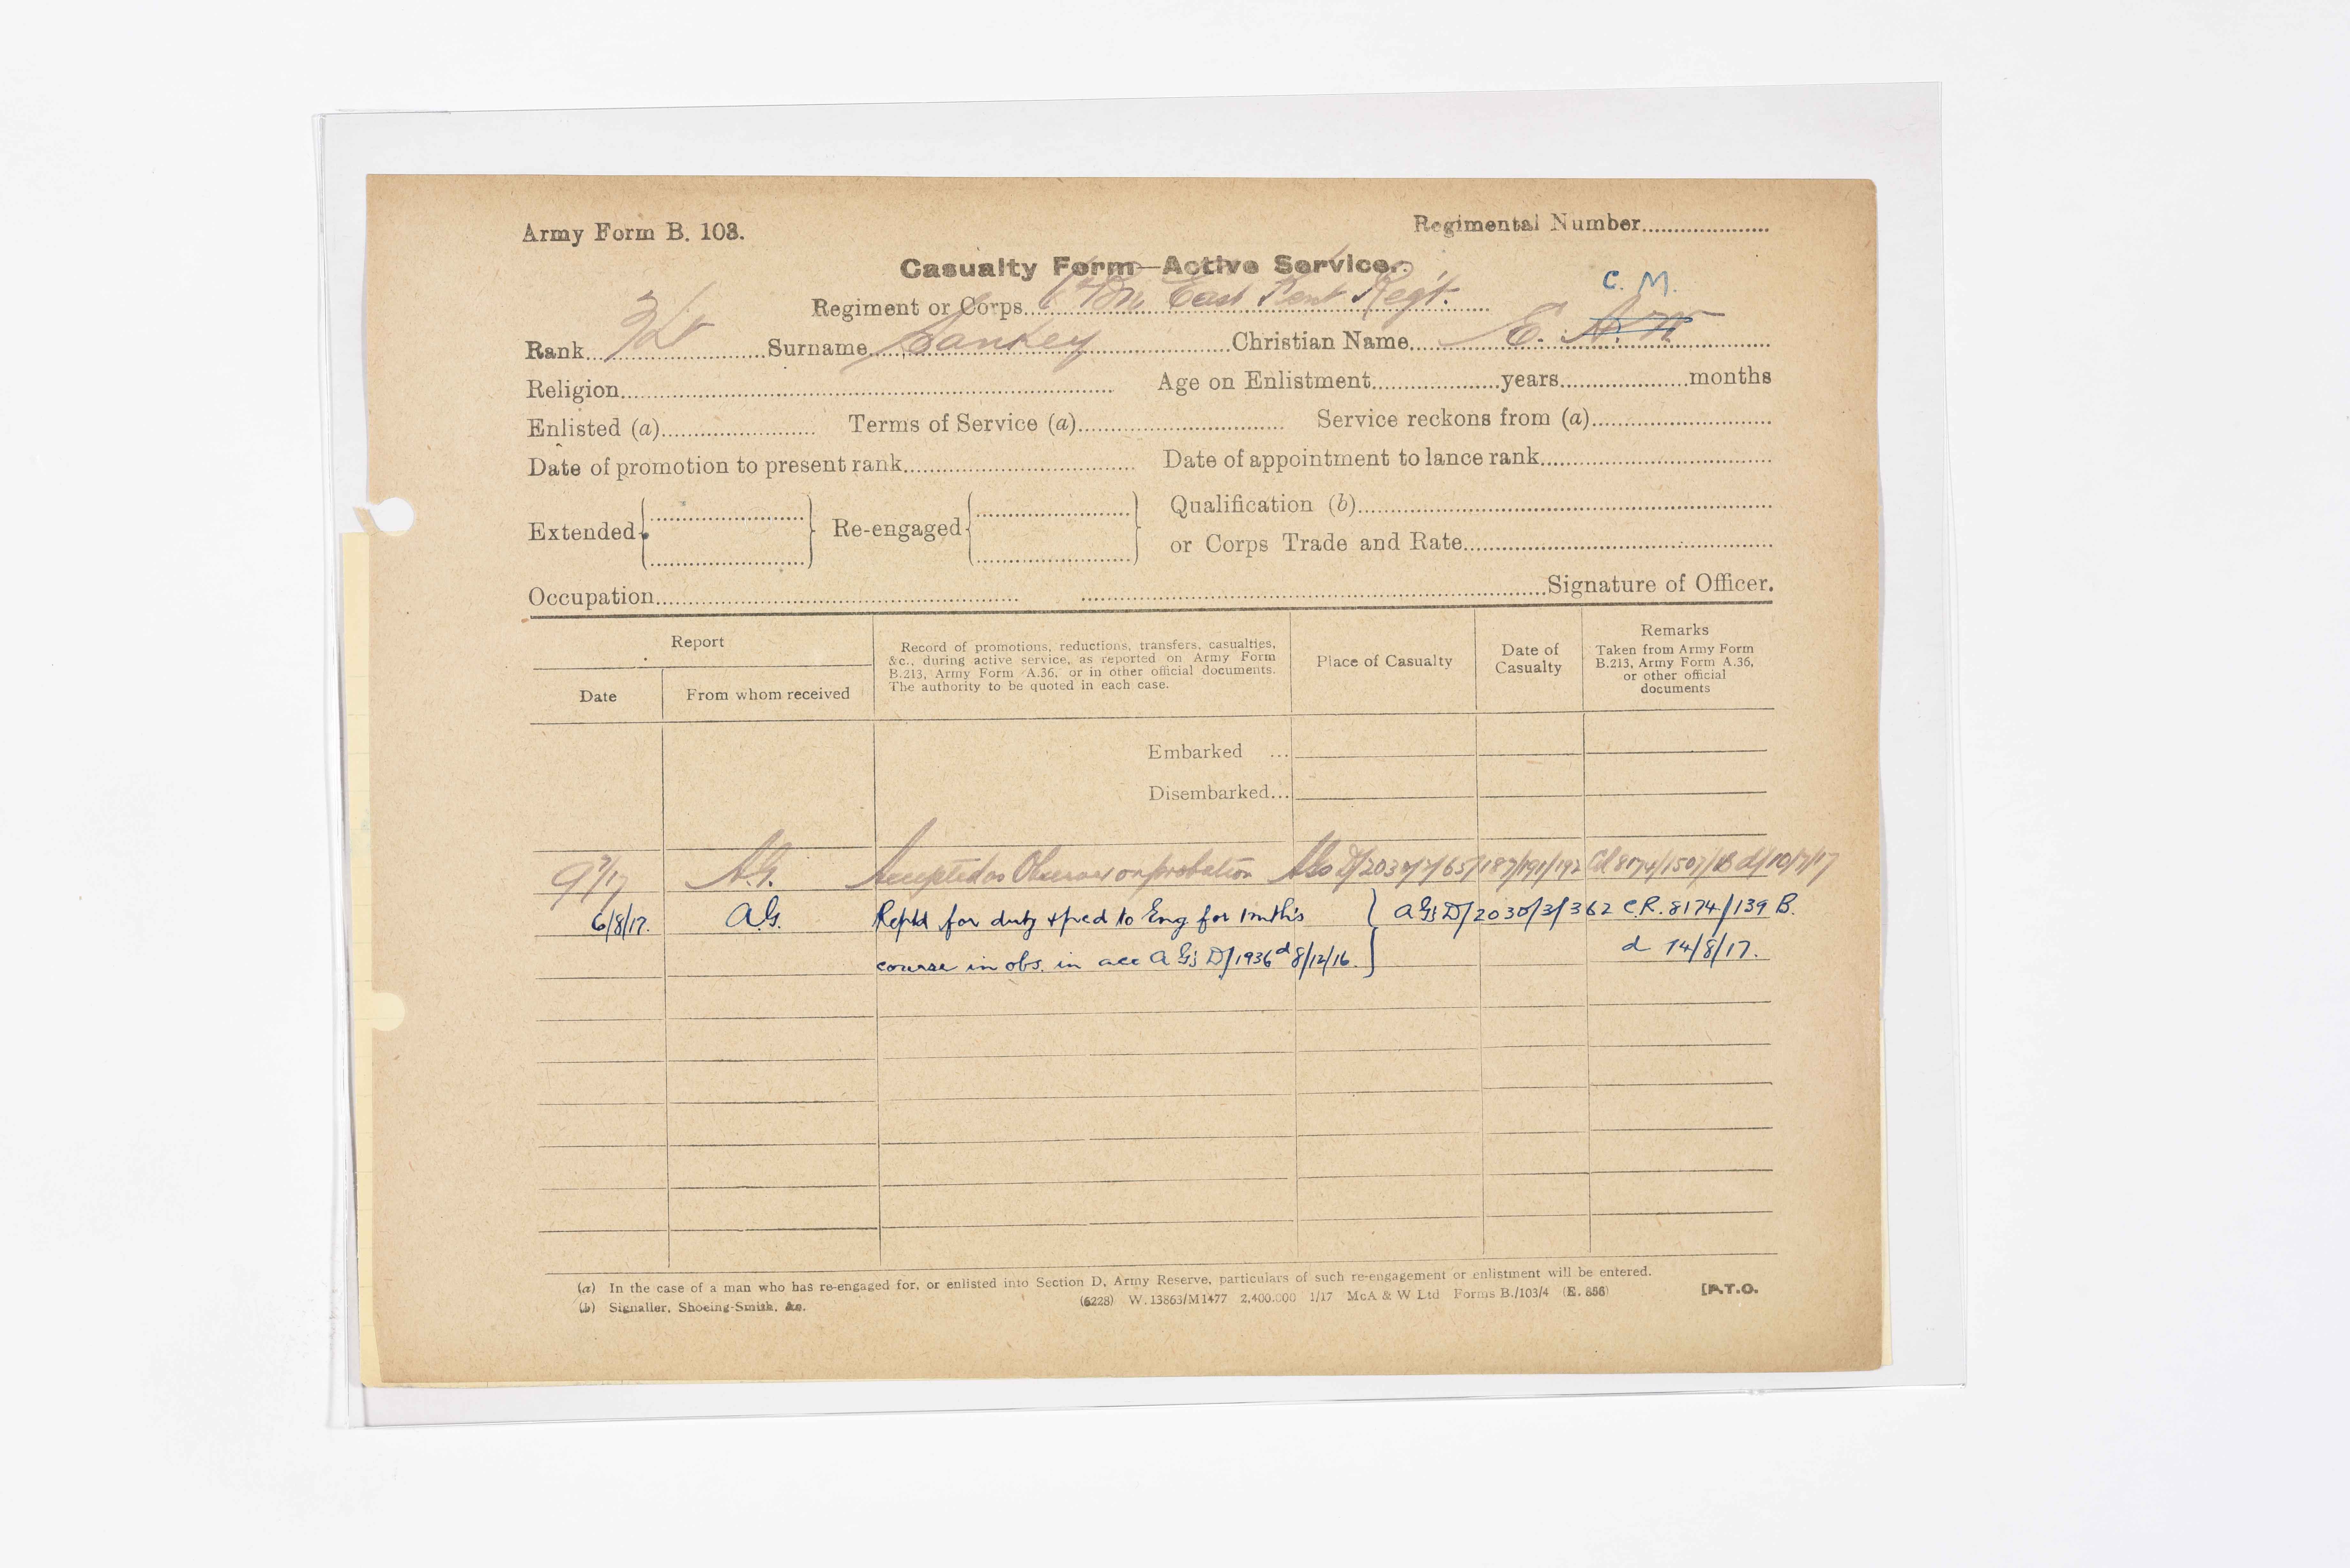 Army Form B. 103.
Regimental Number
Casualty Form—Active Service.
C. M.
Regiment or Corps 6th Bn. East Kent Regt.
Rank 2/Lt Surname Sankey Christian Name E.
Religion Age on Enlistment years months
Enlisted (a) Terms of Service (a) Service reckons from (a)
Date of promotion to present rank Date of appointment to lance rank
Extended Re-engaged Qualification (b)
or Corps Trade and Rate
Occupation Signature of Officer.
Report
Date
From whom received
Record of promotions, reductions, transfers, casualties,
&c., during active service, as reported on Army Form
B.213, Army Form A.36, or in other official documents.
The authority to be quoted in each case.
Place of Casualty
Date of
Casualty
Remarks
Taken from Army Form
B.213, Army Form A.36,
or other official
documents
Embarked ...
Disembarked...
9/7/17 A.G. Accepted as Observer on probation 10/7/17
6/8/17. A.G. Reptd for duty & pred to Eng for 1 mth's } AG's D/2030/3/362 C.R. 8174/139 B.
course in obs. in acc AG's D/1936 d 8/12/16. } d 14/8/17.
(a) In the case of a man who has re-engaged for, or enlisted into Section D, Army Reserve, particulars of such re-engagement or enlistment will be entered.
(b) Signaller, Shoeing-Smith, &c. (6228) W.13863/M1477 2,400,000 1/17 McA & W Ltd Forms B./103/4 (E. 856) [P.T.O.